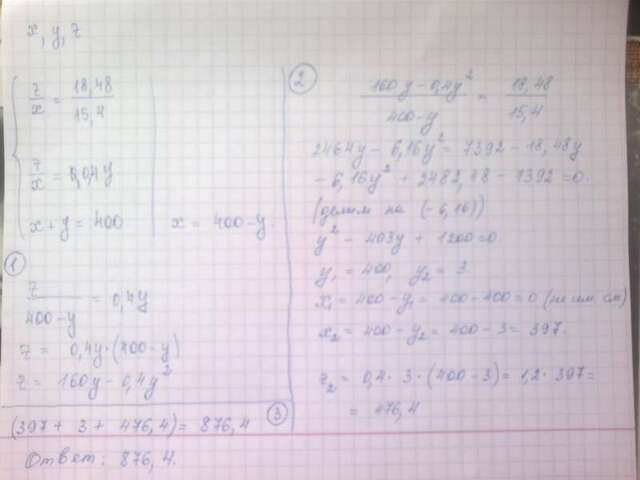 x, y, z
z/x = 18,48/15,4
z/x = 0,04y
x + y = 400
x = 400 - y
①
z/(400 - y) = 0,4y
z = 0,4y·(400 - y)
z = 160y - 0,4y²
②
(160y - 0,4y²)/(400 - y) = 18,48/15,4
2464y - 6,16y² = 7392 - 18,48y
- 6,16y² + 2482,48 - 7392 = 0.
(делим на (-6,16))
y² - 403y + 1200 = 0
y₁ = 400, y₂ = 3
x₁ = 400 - y₁ = 400 - 400 = 0 (не им см)
x₂ = 400 - y₂ = 400 - 3 = 397.
z₂ = 0,4 · 3 · (400 - 3) = 1,2 · 397 =
= 476,4
③
(397 + 3 + 476,4) = 876,4
Ответ: 876,4.